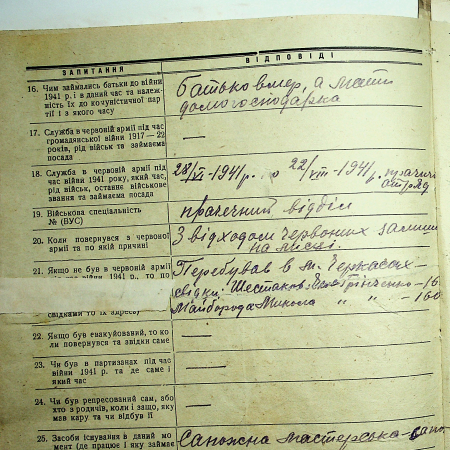 ЗАПИТАННЯ ВІДПОВІДІ
16. Чим займались батьки до війни
1941 р. і в даний час та належ-
ність їх до комуністичної пар-
тії і з якого часу
Батько вмер, а мати
домогосподарка
17. Служба в червоній армії під час
громадянської війни 1917—22
років, рід військ та займаєма
посада
—
18. Служба в червоній армії під
час війни 1941 року, який час,
рід військ, останнє військове
звання та займаєма посада
28/VI-1941 р. по 22/VIII-1941 р.
19. Військова спеціальність
№ (ВУС)
прачечний відділ
20. Коли повернувся з червоної
армії та по якій причині
З відходом червоних
на місці.
21. Якщо не був в червоній армії
війни 1941 р., то по
Перебував в м. Черкасах —
свідки: Шестаков, Грінченко -16
Майборода Микола " " -160
свідками то їх адресу)
22. Якщо був евакуйований, то ко-
ли повернувся та звідки саме
—
23. Чи був в партизанах під час
війни 1941 р. та де саме і
який час
—
24. Чи був репресований сам, або
хто з родичів, коли і защо, яку
мав кару та чи відбув її
—
25. Засоби існування в даний мо-
мент (де працює і яку займає
Сапожна мастерська